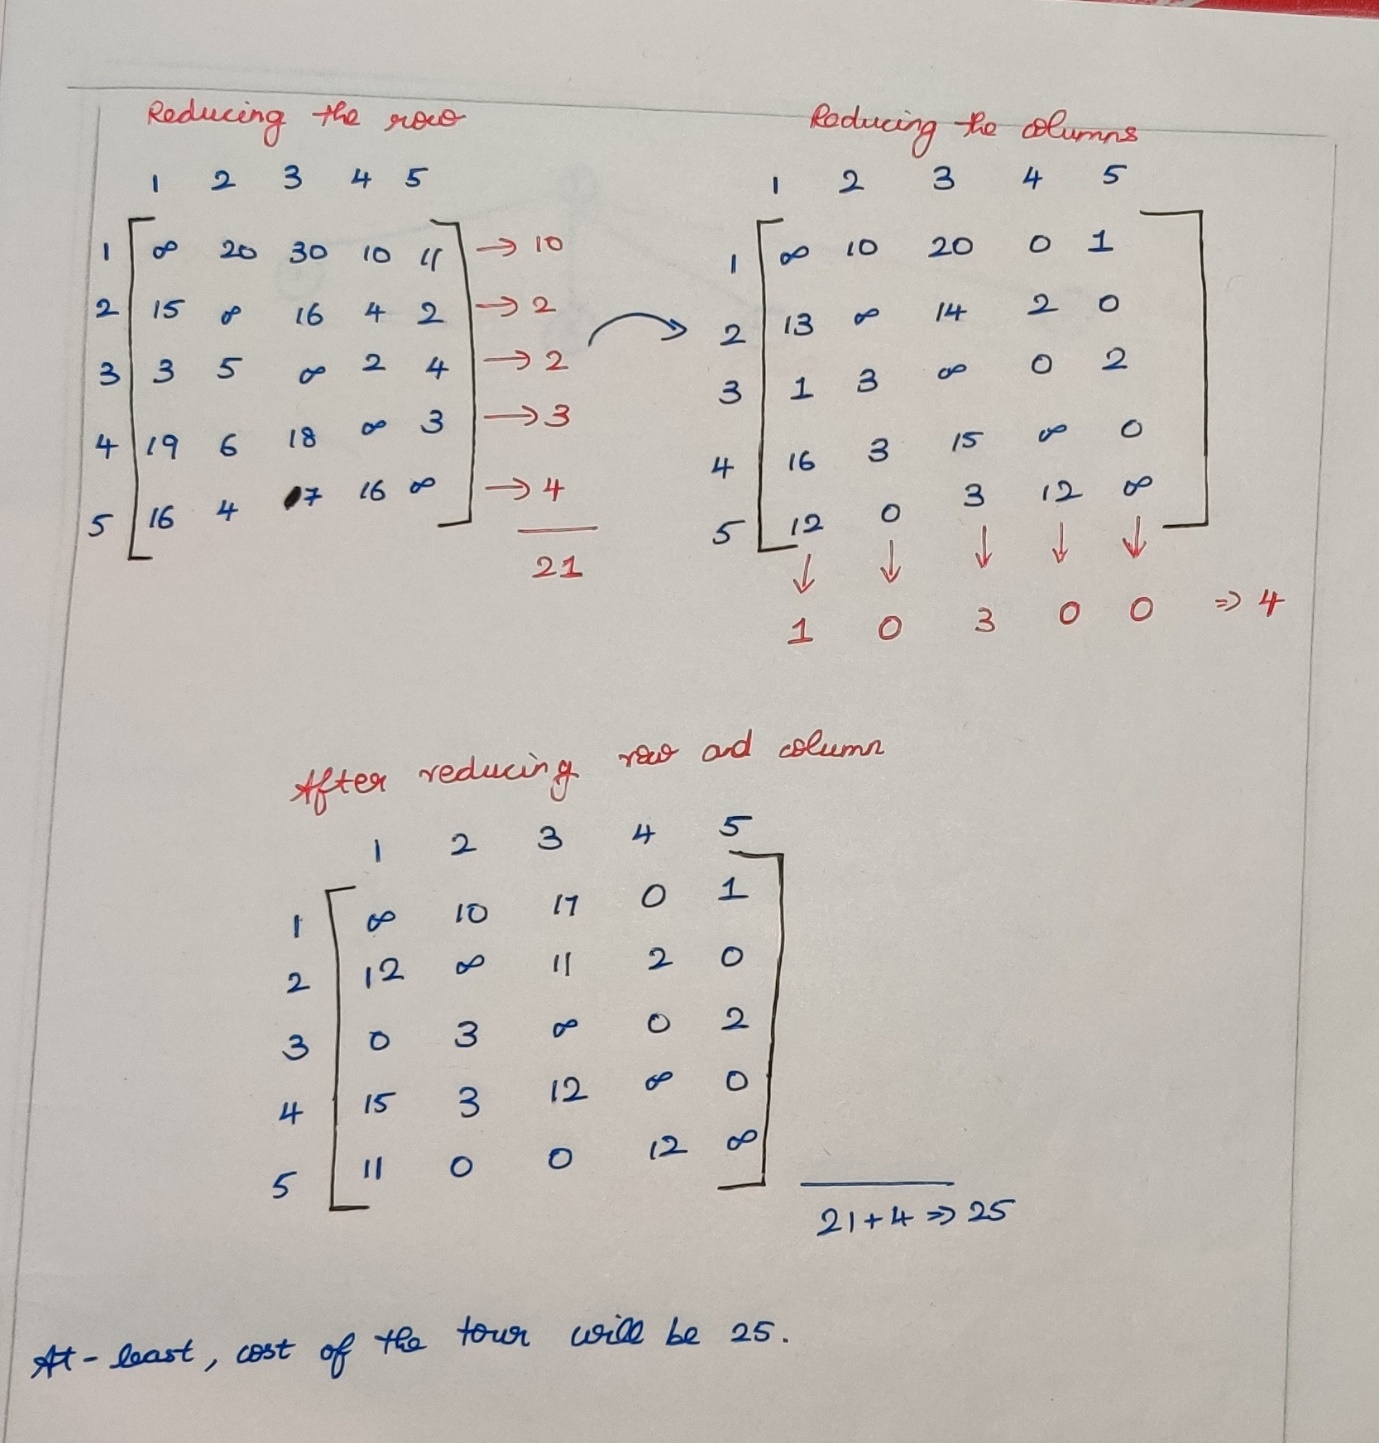 Reducing the row
1 2 3 4 5
1 ∞ 20 30 10 11 → 10
2 15 ∞ 16 4 2 → 2
3 3 5 ∞ 2 4 → 2
4 19 6 18 ∞ 3 → 3
5 16 4 7 16 ∞ → 4
21
Reducing the columns
1 2 3 4 5
1 ∞ 10 20 0 1
2 13 ∞ 14 2 0
3 1 3 ∞ 0 2
4 16 3 15 ∞ 0
5 12 0 3 12 ∞
↓ ↓ ↓ ↓ ↓
1 0 3 0 0 ⇒ 4
After reducing row and column
1 2 3 4 5
1 ∞ 10 17 0 1
2 12 ∞ 11 2 0
3 0 3 ∞ 0 2
4 15 3 12 ∞ 0
5 11 0 0 12 ∞
21+4 ⇒ 25
At-least, cost of the tour will be 25.